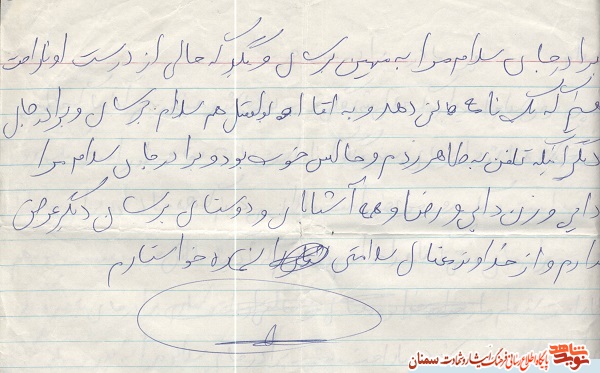 برادر جان سلام مرا به مهین برسان و بگو که خالی از درست اونا راحت
هستم که یک نامه به من دهد و به آقا ابوالفضل هم سلام برسان و برادر جان
دیگر اینکه تلفن به طاهر زدم و حالش خوب بود و برادر جان سلام مرا
دایی و زن دایی و رضا و همه آشنایان و دوستان برسان دیگر عرضی
ندارم و از خداوند متعال سلامتی را خواستارم
نوید شاهد
پایگاه اطلاع رسانی فرهنگ ایثار و شهادت سمنان